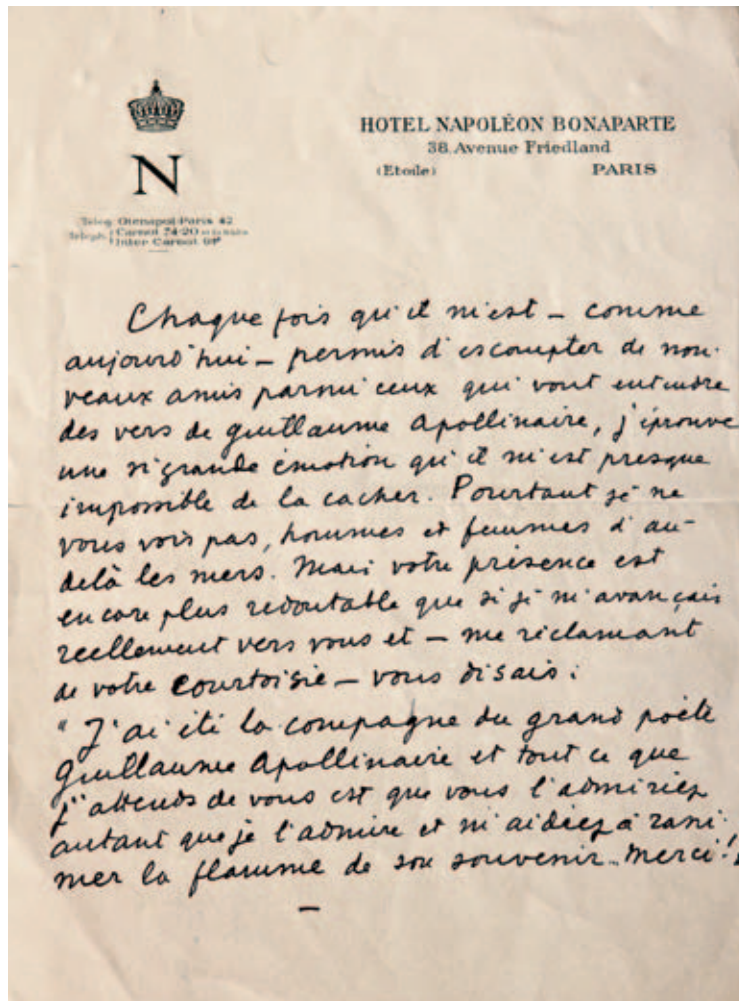 N
HOTEL NAPOLÉON BONAPARTE
38, Avenue Friedland
(Etoile) PARIS
Otenapol-Paris 42
Carnot 74-20
Inter Carnot
Chaque fois qu'il m'est – comme
aujourd'hui – permis d'escompter de nou-
veaux amis parmi ceux qui vont entendre
des vers de Guillaume Apollinaire, j'éprouve
une si grande émotion qu'il m'est presque
impossible de la cacher. Pourtant je ne
vous vois pas, hommes et femmes d'au-
delà les mers. Mais votre présence est
encore plus redoutable que si je m'avançais
reellement vers vous et – me réclamant
de votre courtoisie – vous disais :
"J'ai été la compagne du grand poète
Guillaume Apollinaire et tout ce que
j'attends de vous est que vous l'admiriez
autant que je l'admire et m'aidiez à rani-
mer la flamme de son souvenir. Merci!"